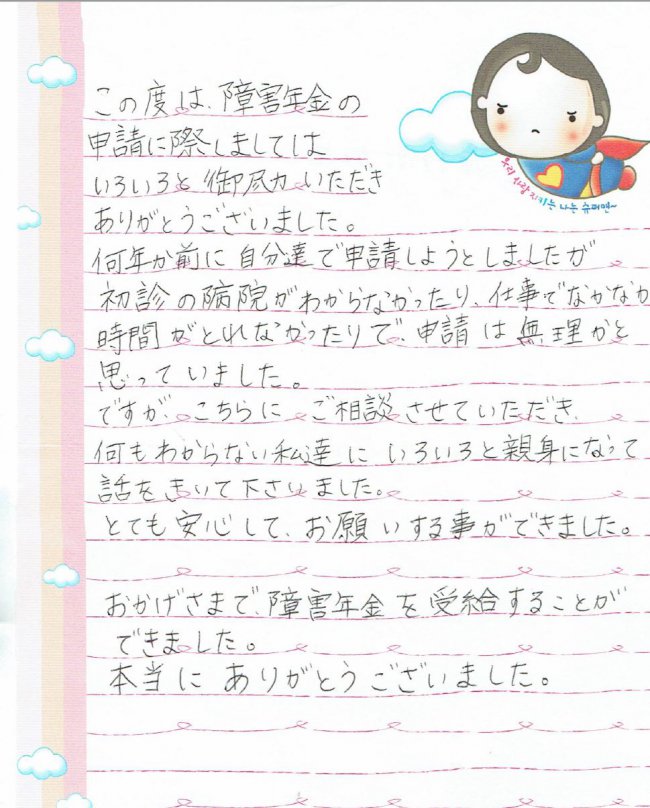 この度は、障害年金の
申請に際しましては
いろいろと御尽力いただき
ありがとうございました。
우리 사랑 지키는 나는 슈퍼맨~
何年か前に自分達で申請しようとしましたが
初診の病院がわからなかったり、仕事でなかなか
時間がとれなかったりで、申請は無理かと
思っていました。
ですが、こちらにご相談させていただき、
何もわからない私達にいろいろと親身になって
話をきいて下さいました。
とても安心して、お願いする事ができました。
おかげさまで、障害年金を受給することが
できました。
本当にありがとうございました。